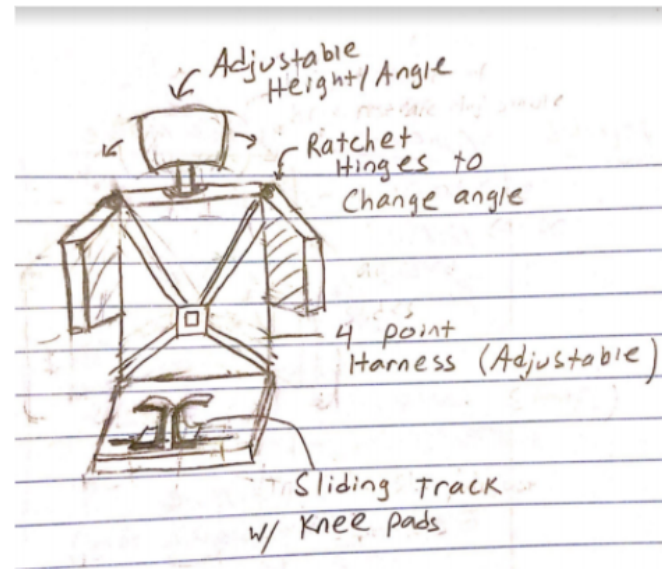 Adjustable
Height/Angle
Ratchet
Hinges to
Change angle
4 point
Harness (Adjustable)
Sliding Track
w/ Knee pads